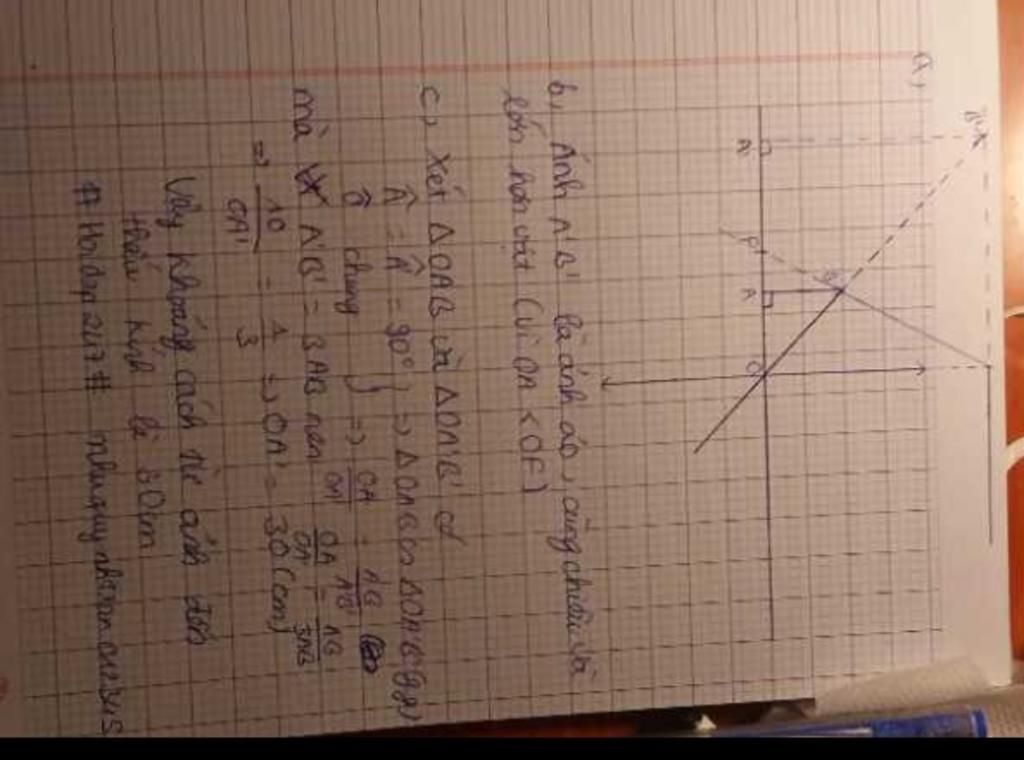 a,
B'
A'
F
B
A
O
b, Ảnh A'B' là ảnh ảo, cùng chiều và
lớn hơn vật (vì OA < OF)
c, Xét ΔOAB và ΔOA'B' có
Â = Â' = 90°
Ô chung } => ΔOAB ∽ ΔOA'B' (gg)
=> OA/OA' = AB/A'B'
mà A'B' = 3AB nên OA/OA' = AB/3AB
=> 10/OA' = 1/3 => OA' = 30 (cm)
Vậy khoảng cách từ ảnh đến
thấu kính là 30cm
# Hoidap247 #